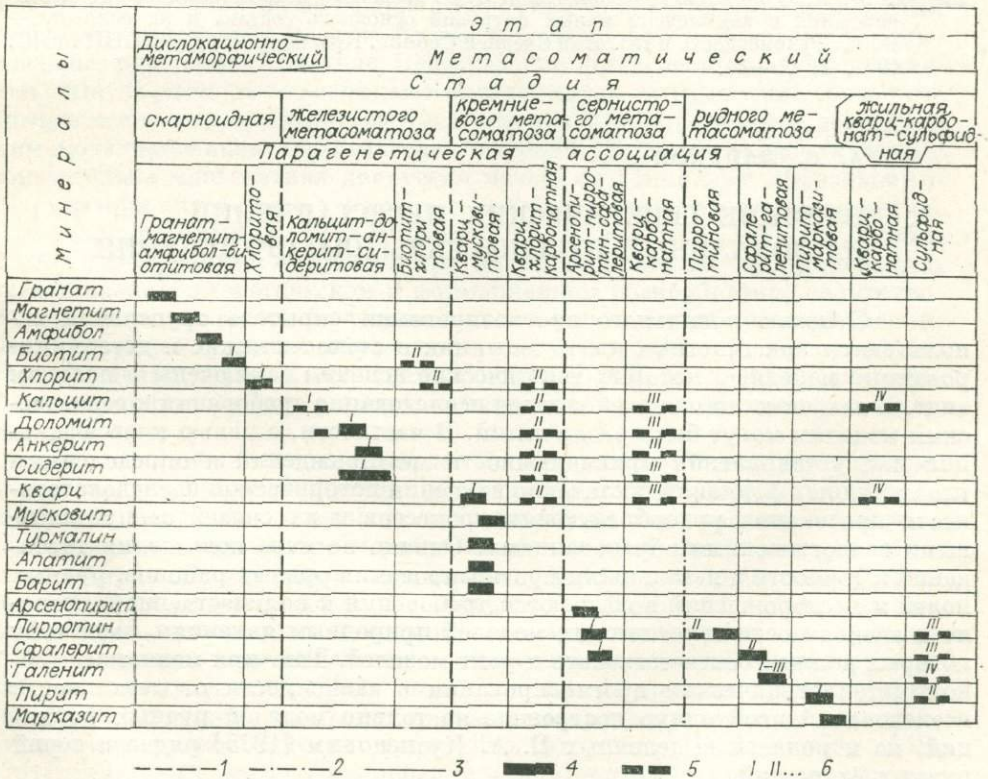 Минералы
Этап
Дислокационно-
метаморфический
Метасоматический
Стадия
скарноидная
железистого
метасоматоза
кремние-
вого мета-
соматоза
сернисто-
го мета-
соматоза
рудного ме-
тасоматоза
жильная
кварц-карбо-
нат-сульфид-
ная
Парагенетическая ассоциация
Гранат-
магнетит-
амфибол-би-
отитовая
Хлорито-
вая
Кальцит-до-
ломит-ан-
керит-си-
деритовая
Биотит-
хлори-
товая
Кварц-
мускови-
товая
Кварц-
хлорит
карбонатная
Арсенопи-
рит-пирро-
тин-сфа-
леритовая
Кварц-
карбо-
натная
Пирро-
тиновая
Сфале-
рит-га-
ленитовая
Пирит-
маркази-
товая
Кварц-
карбо-
натная
Сульфид-
ная
Гранат
Магнетит
Амфибол
Биотит I II
Хлорит I II II
Кальцит I II III IV
Доломит I II III
Анкерит I II III
Сидерит I II III
Кварц I II III IV
Мусковит
Турмалин
Апатит
Барит
Арсенопирит
Пирротин I II III
Сфалерит I II III
Галенит I-III IV
Пирит I II
Марказит
1 2 3 4 5 I, II... 6